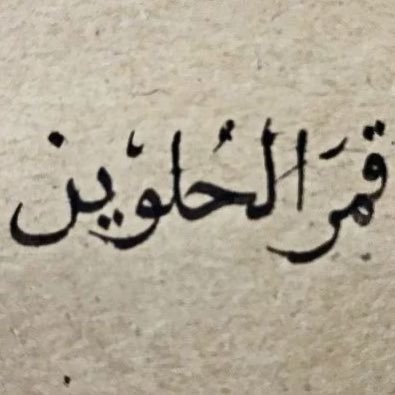 قمَر الحُلوين